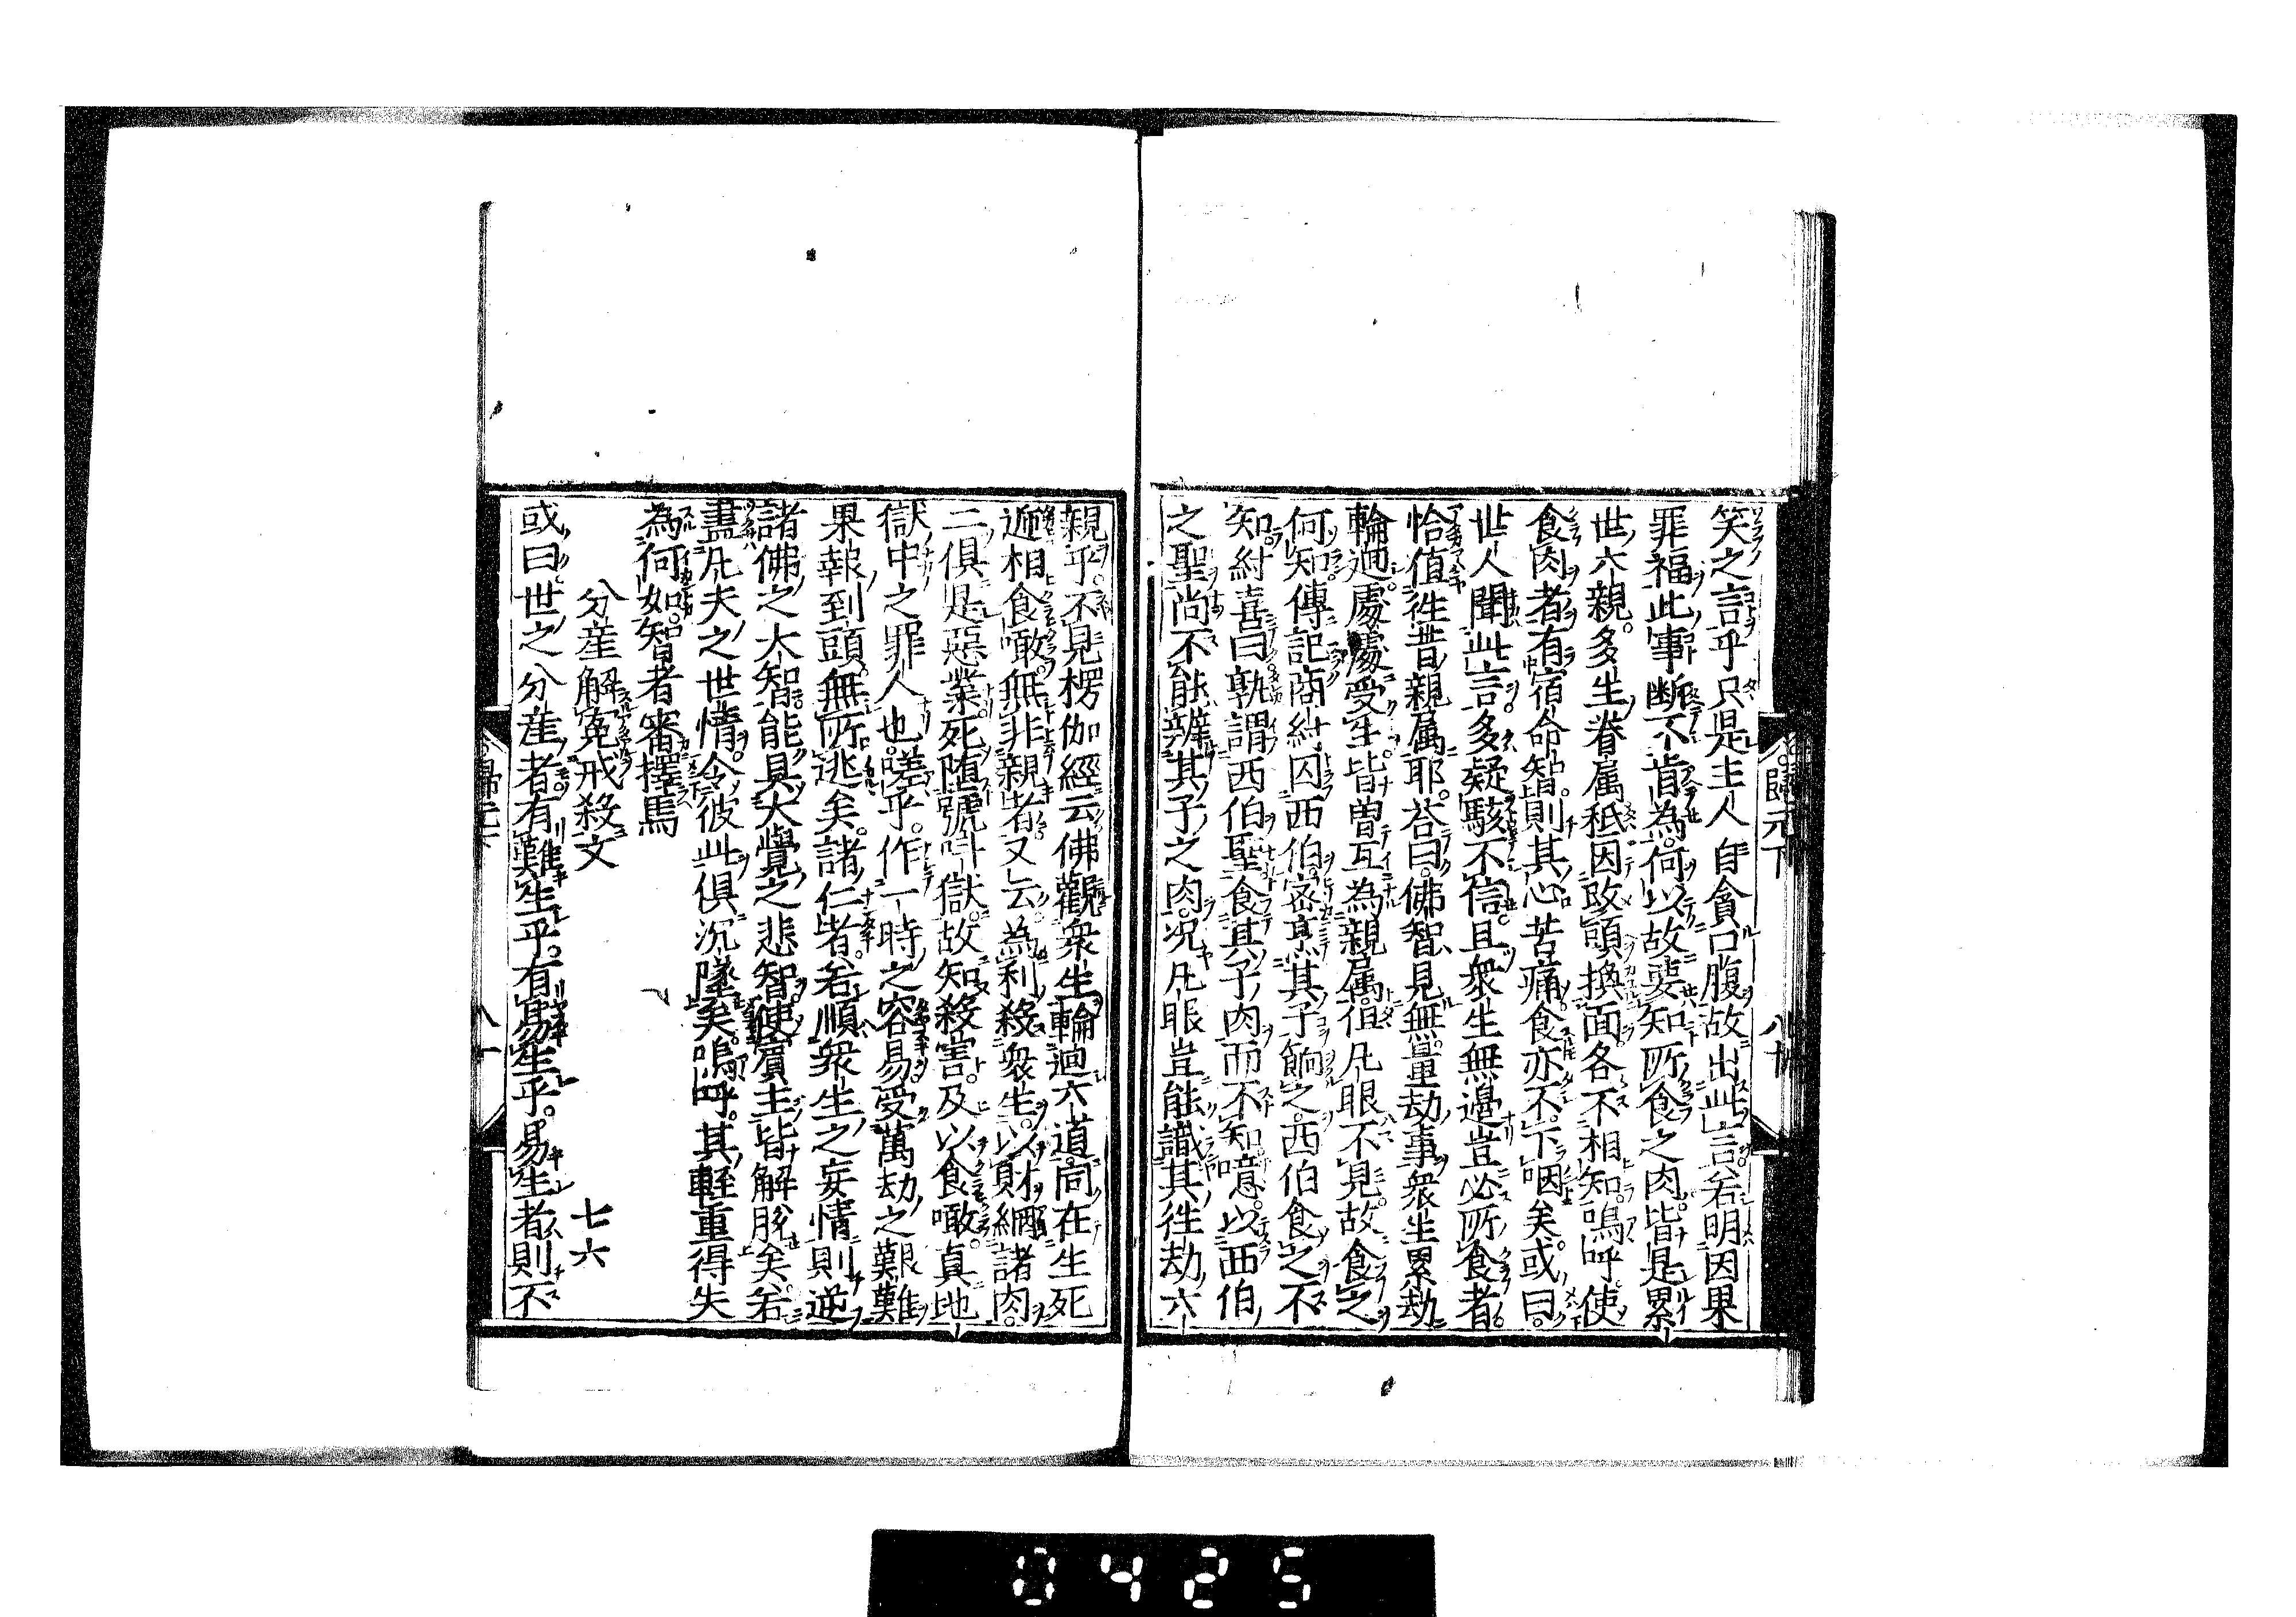 笑之言乎只是主人自貪口腹故出此言若明因果
罪福此事断不肯為何以故要知所食之肉皆是累
世六親多生眷属秪因改頭換面各不相知嗚呼使
食肉者有宿命智則其心苦痛食亦不下咽矣或曰
世人聞此言多疑駭不信且衆生無邊豈必所食者
恰值徃昔親属耶荅曰佛智見無量劫事衆生累劫
輪廻處處受生皆曽互為親属但凡眼不見故食之
何知傳記商紂囚西伯密烹其子餉之西伯食之不
知紂喜曰孰謂西伯聖食其子肉而不知噫以西伯
之聖尚不能辨其子之肉况凡眼豈能識其徃劫六
歸元下
八十
親乎不見楞伽經云佛觀衆生輪廻六道同在生死
遞相食噉無非親者又云為利殺衆生以財網諸肉
二俱是惡業死堕號叫獄故知殺害及以食噉真地
獄中之罪人也嗟乎作一時之容易受萬劫之艱難
果報到頭無所逃矣諸仁者若順衆生之妄情則逆
諸佛之大智能具大覺之悲智使賓主皆解脱矣若
盡凡夫之世情令彼此俱沉墜矣嗚呼其輕重得失
為何如智者審擇焉
分産解冤戒殺文 七六
或曰世之分産者有難生乎有易生乎易生者則不
歸元下
八一
0425